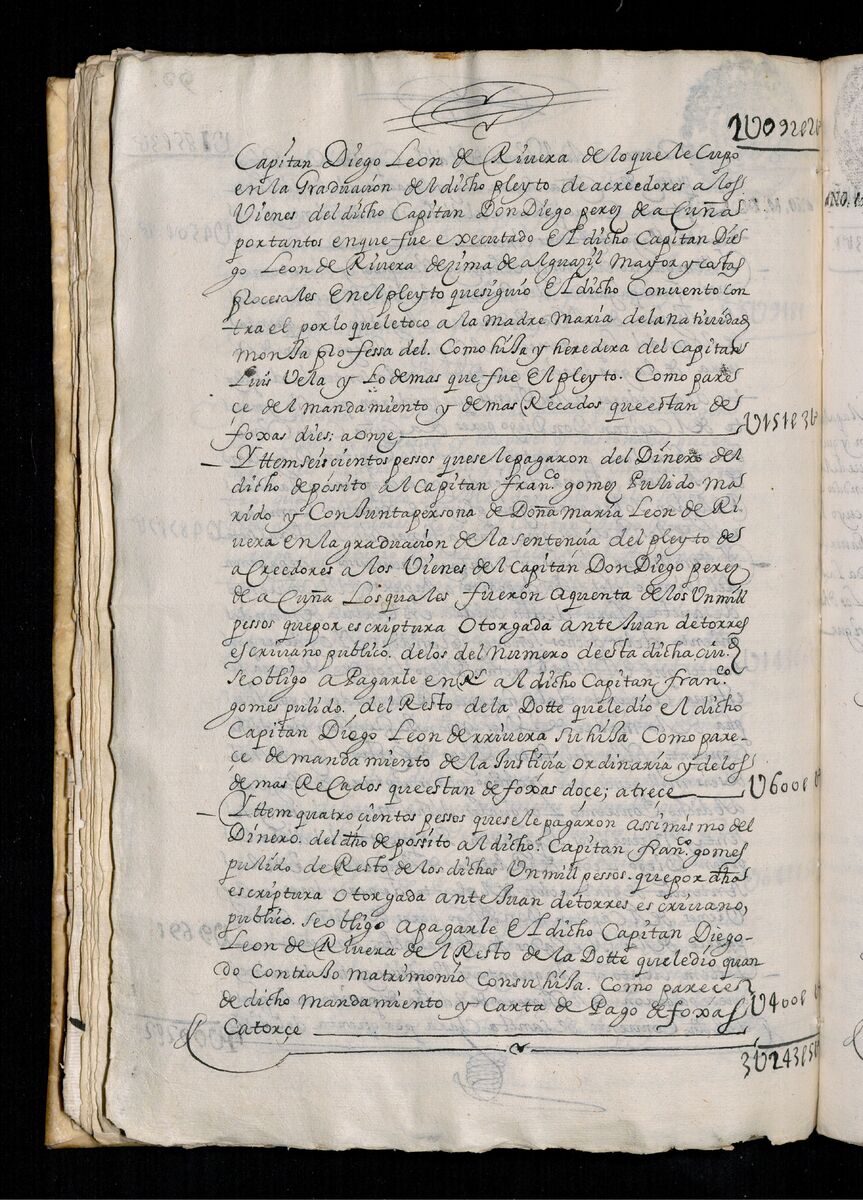 2U092
Capitan Diego Leon de Rivera de lo que le Cupo
en la Graduacion del dicho pleyto de acreedores a los
Vienes del dicho Capitan Don Diego perez de a Cuña
por tantos en que fue executado El dicho Capitan Die
go Leon de Rivera dezima de alguazil Mayor y costas
procesales En el pleyto que siguio El dicho Convento con
tra el por lo que le toco a la Madre Maria de la natividad
Monja professa del. Como hija y heredera del Capitan
Luis Vela y Lo demas que fue El pleyto. Como pare
çe del mandamiento y demas Recados que estan de
foxas dies; a onze U151
Yttem seis cientos pessos que se le pagaron del Dinero del
dicho depóssito al Capitan fran.co gomez Pulido Ma
rido y Conjunta persona de Doña Maria Leon de Ri
vera en la graduacion de la sentencia del pleyto de
a Creedores a los Vienes del Capitan Don Diego perez
de a Cuña Los quales fueron a quenta de los Un mill
pessos que por escriptura Otorgada ante Juan de torres
escrivano publico. de los del Numero de esta dicha ciu.d
se obligo a Pagarle en Rs al dicho Capitan fran.co
gomes pulido. del Resto de la Dotte que le dio el dicho
Capitan Diego Leon de rrivera su hija Como pare-
çe de mandamiento de la Justicia ordinaria y de los
demas Recados que estan de foxas doce; a trece U600
Yttem quatro cientos pessos que se le pagaron assimismo del
Dinero. del dho depóssito al dicho: Capitan fran.co gomes
pulido de Resto de los dichos Un mill pessos. que por dha
escriptura Otorgada ante Juan de torres escrivano,
publico. se obligo a pagarle El dicho Capitan Diego-
Leon de Rivera del Resto de la Dotte que le dio quan
do Contrajo Matrimonio Con su hija. Como pareçe
de dicho Mandamiento y Carta de Pago de foxas U400
Catorçe
3U243